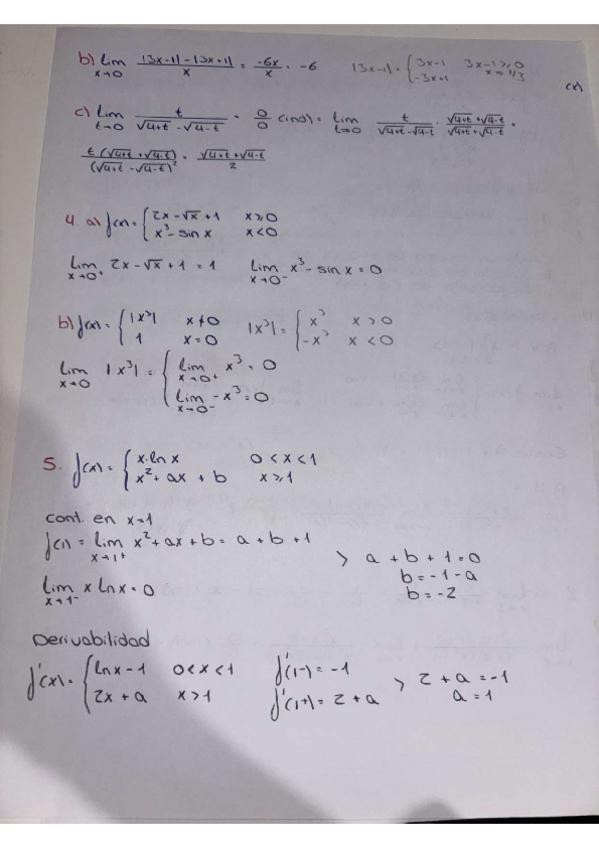 b) lim x→0 |3x-1| - |3x+1| / x = -6x/x = -6 |3x-1| = { 3x-1 3x-1 ≥ 0 x ≥ 1/3
-3x+1
c) lim t→0 t / √4+t - √4-t = 0/0 (ind) = lim t→0 t / √4+t - √4-t · √4+t + √4-t / √4+t + √4-t =
t (√4+t + √4-t) / (√4+t - √4-t)² = √4+t + √4-t / 2
4. a) f(x) = { 2x - √x + 1 x ≥ 0
x³ - sin x x < 0
lim x→0+ 2x - √x + 1 = 1 lim x→0- x³ - sin x = 0
b) f(x) = { |x³| x ≠ 0 |x³| = { x³ x > 0
1 x = 0 -x³ x < 0
lim x→0 |x³| = { lim x→0+ x³ = 0
lim x→0- -x³ = 0
5. f(x) = { x·ln x 0 < x < 1
x² + ax + b x ≥ 1
cont. en x=1
f(1) = lim x→1+ x² + ax + b = a + b + 1 > a + b + 1 = 0
b = -1 - a
lim x→1- x ln x = 0 b = -2
Derivabilidad
f'(x) = { ln x - 1 0 < x < 1 f'(1-) = -1 > 2 + a = -1
2x + a x > 1 f'(1+) = 2 + a a = 1